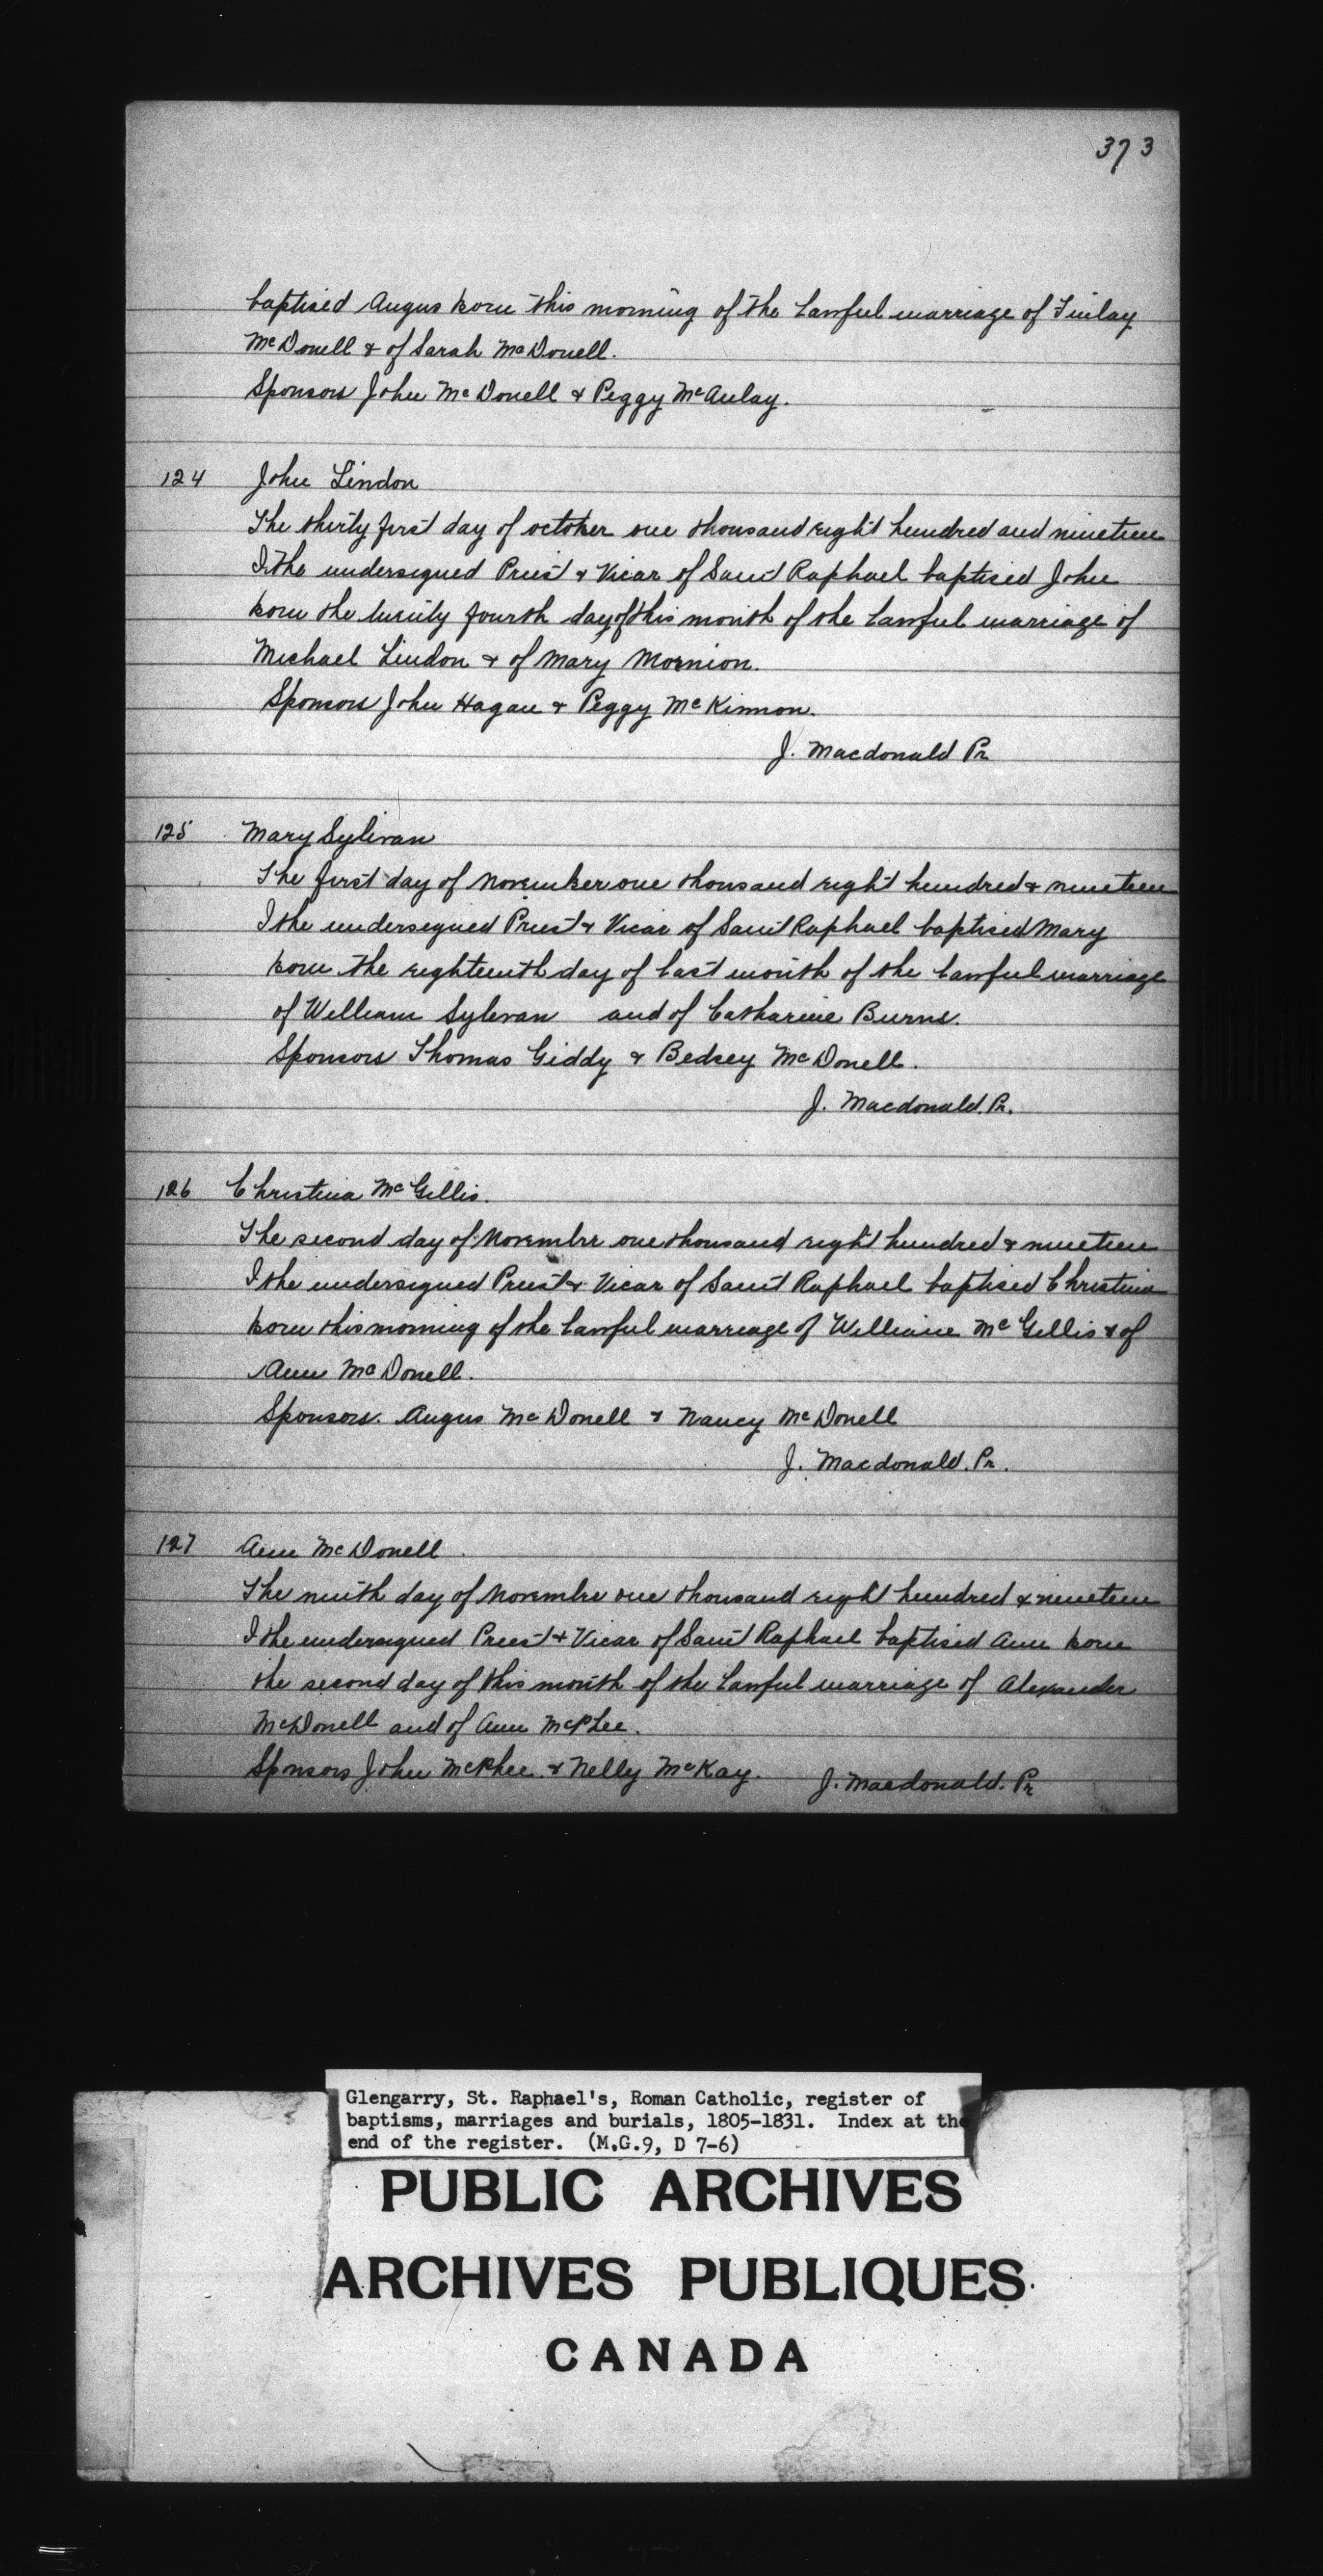 373
baptised Angus born this morning of the lawful marriage of Finlay
McDonell & of Sarah McDonell.
Sponsors John McDonell & Peggy McAulay.
124 John Lindon
The thirty first day of october one thousand eight hundred and nineteen
I the undersigned Priest & Vicar of Saint Raphael baptised John
born the twenty fourth day of this month of the lawful marriage of
Michael Lindon & of Mary Mornion.
Sponsors John Hagan & Peggy McKinnon.
J. Macdonald Pr
125 Mary Sylivan
The first day of November one thousand eight hundred & nineteen
I the undersigned Priest & Vicar of Saint Raphael baptised Mary
born the eighteenth day of last month of the lawful marriage
of William Sylevan and of Catharine Burns.
Sponsors Thomas Giddy & Bedsey McDonell.
J. Macdonald. Pr.
126 Christina McGillis.
The second day of Novembr one thousand eight hundred & nineteen
I the undersigned Priest & Vicar of Saint Raphael baptised Christina
born this morning of the lawful marriage of William McGillis & of
Ann McDonell.
Sponsors. Angus McDonell & Nancy McDonell
J. Macdonald. Pr.
127 Ann McDonell.
The ninth day of Novembre one thousand eight hundred & nineteen
I the undersigned Priest & Vicar of Saint Raphael baptised Ann born
the second day of this month of the lawful marriage of Alexander
McDonell and of Ann McPhee.
Sponsors John McPhee & Nelly McKay. J. Macdonald. Pr
Glengarry, St. Raphael's, Roman Catholic, register of
baptisms, marriages and burials, 1805-1831. Index at the
end of the register. (M.G.9, D 7-6)
PUBLIC ARCHIVES
ARCHIVES PUBLIQUES
CANADA